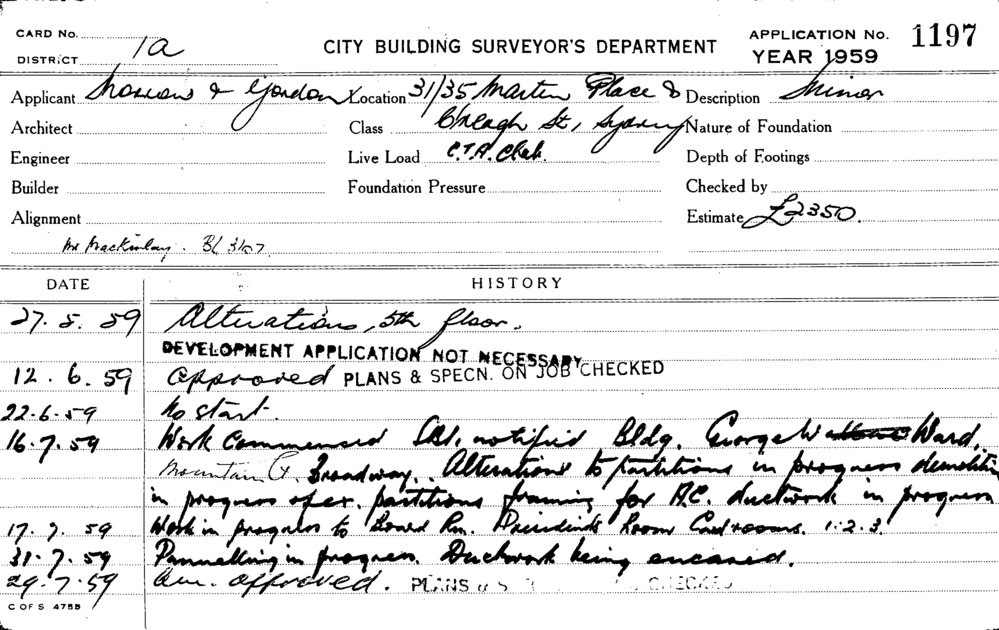 CARD No.
DISTRICT 1a
CITY BUILDING SURVEYOR'S DEPARTMENT
APPLICATION No. 1197
YEAR 1959
Applicant & Gordon Location 31/35 Martin Place & Description Minor
Architect Class St, Sydney Nature of Foundation
Engineer Live Load C.T.A. Club. Depth of Footings
Builder Foundation Pressure Checked by
Alignment Estimate £2350.
Mr MacKinlay. BL 3107
DATE HISTORY
27. 5. 59 Alterations, 5th floor.
DEVELOPMENT APPLICATION NOT NECESSARY
12. 6. 59 Approved PLANS & SPECN. ON JOB CHECKED
22-6-59 No start.
16.7.59 Work Commenced notified Bldg. George Ward,
Mountain Broadway. Alterations to partitions in progress demolition
in progress partitions framing for A.C. ductwork in progress
17. 7. 59 Work in progress to Board Rm. Presidents Room 1.2.3.
31.7.59 Pannelling in progress. Ductwork being encased.
29.7.59 Am. approved. PLANS & S CHECKED
C OF S 475B